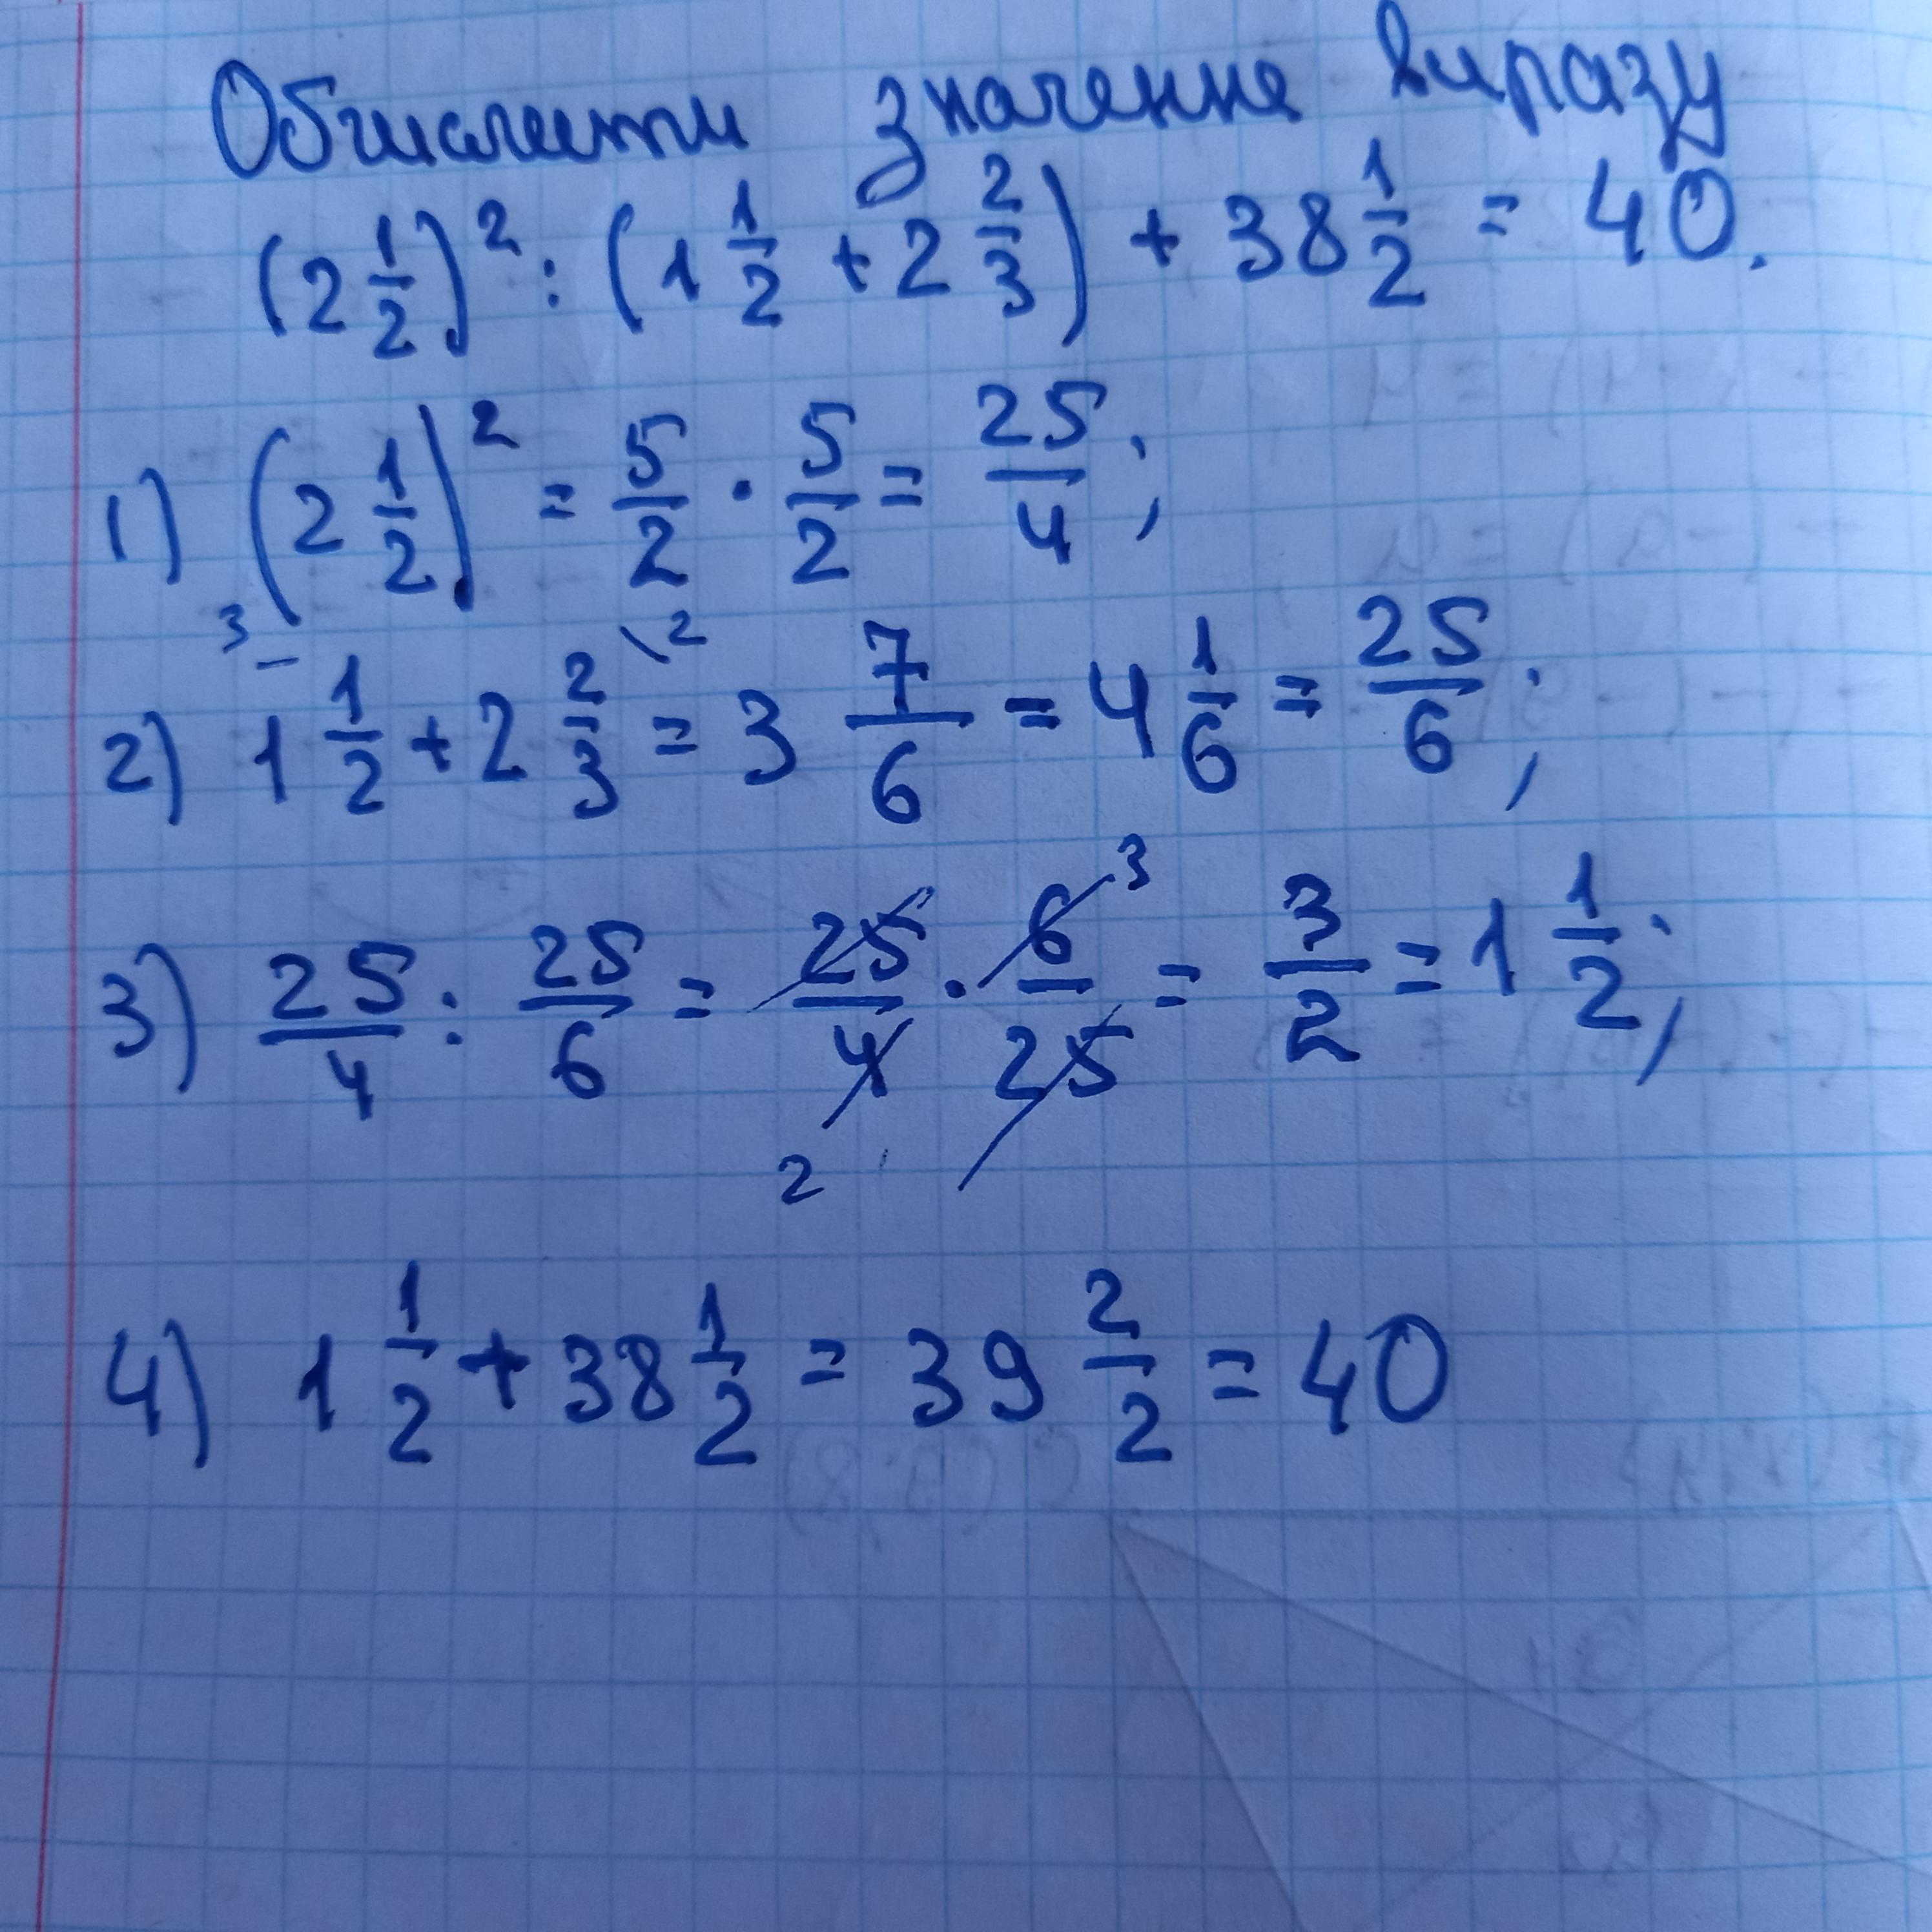 Обчислити значення виразу
(2 1/2)² : (1 1/2 + 2 2/3) + 38 1/2 = 40.
1) (2 1/2)² = 5/2 · 5/2 = 25/4;
3 2
2) 1 1/2 + 2 2/3 = 3 7/6 = 4 1/6 = 25/6;
3
3) 25/4 : 25/6 = 25/4 · 6/25 = 3/2 = 1 1/2;
2
4) 1 1/2 + 38 1/2 = 39 2/2 = 40